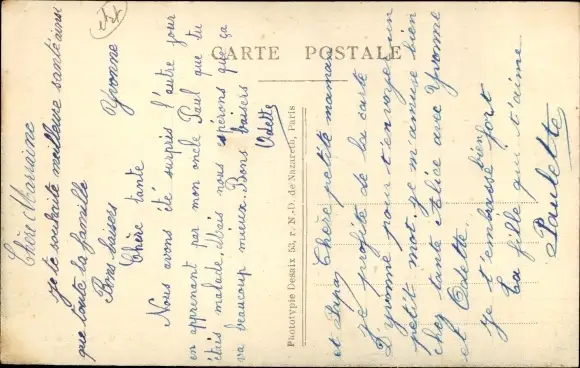 CARTE POSTALE
Chère Marraine
Je te souhaite meilleure santé ainsi
que toute la famille
Bons baisers Yvonne
Chère tante
Nous avons été surpris l'autre jour
en apprenant par mon oncle Paul que tu
étais malade. Mais nous esperons que ça
va beaucoup mieux. Bons baisers
Odette
Phototypie Desaix 53, r. N.-D. de Nazareth, Paris
Chère petite maman
et Papa
je profite de la carte
D'yvonne pour t'envoyer un
petit mot. je m'amuse bien
chez tante Alice avec Yvonne
et Odette.
Je t'embrasse bien fort
Ta fille qui t'aime
Paulette